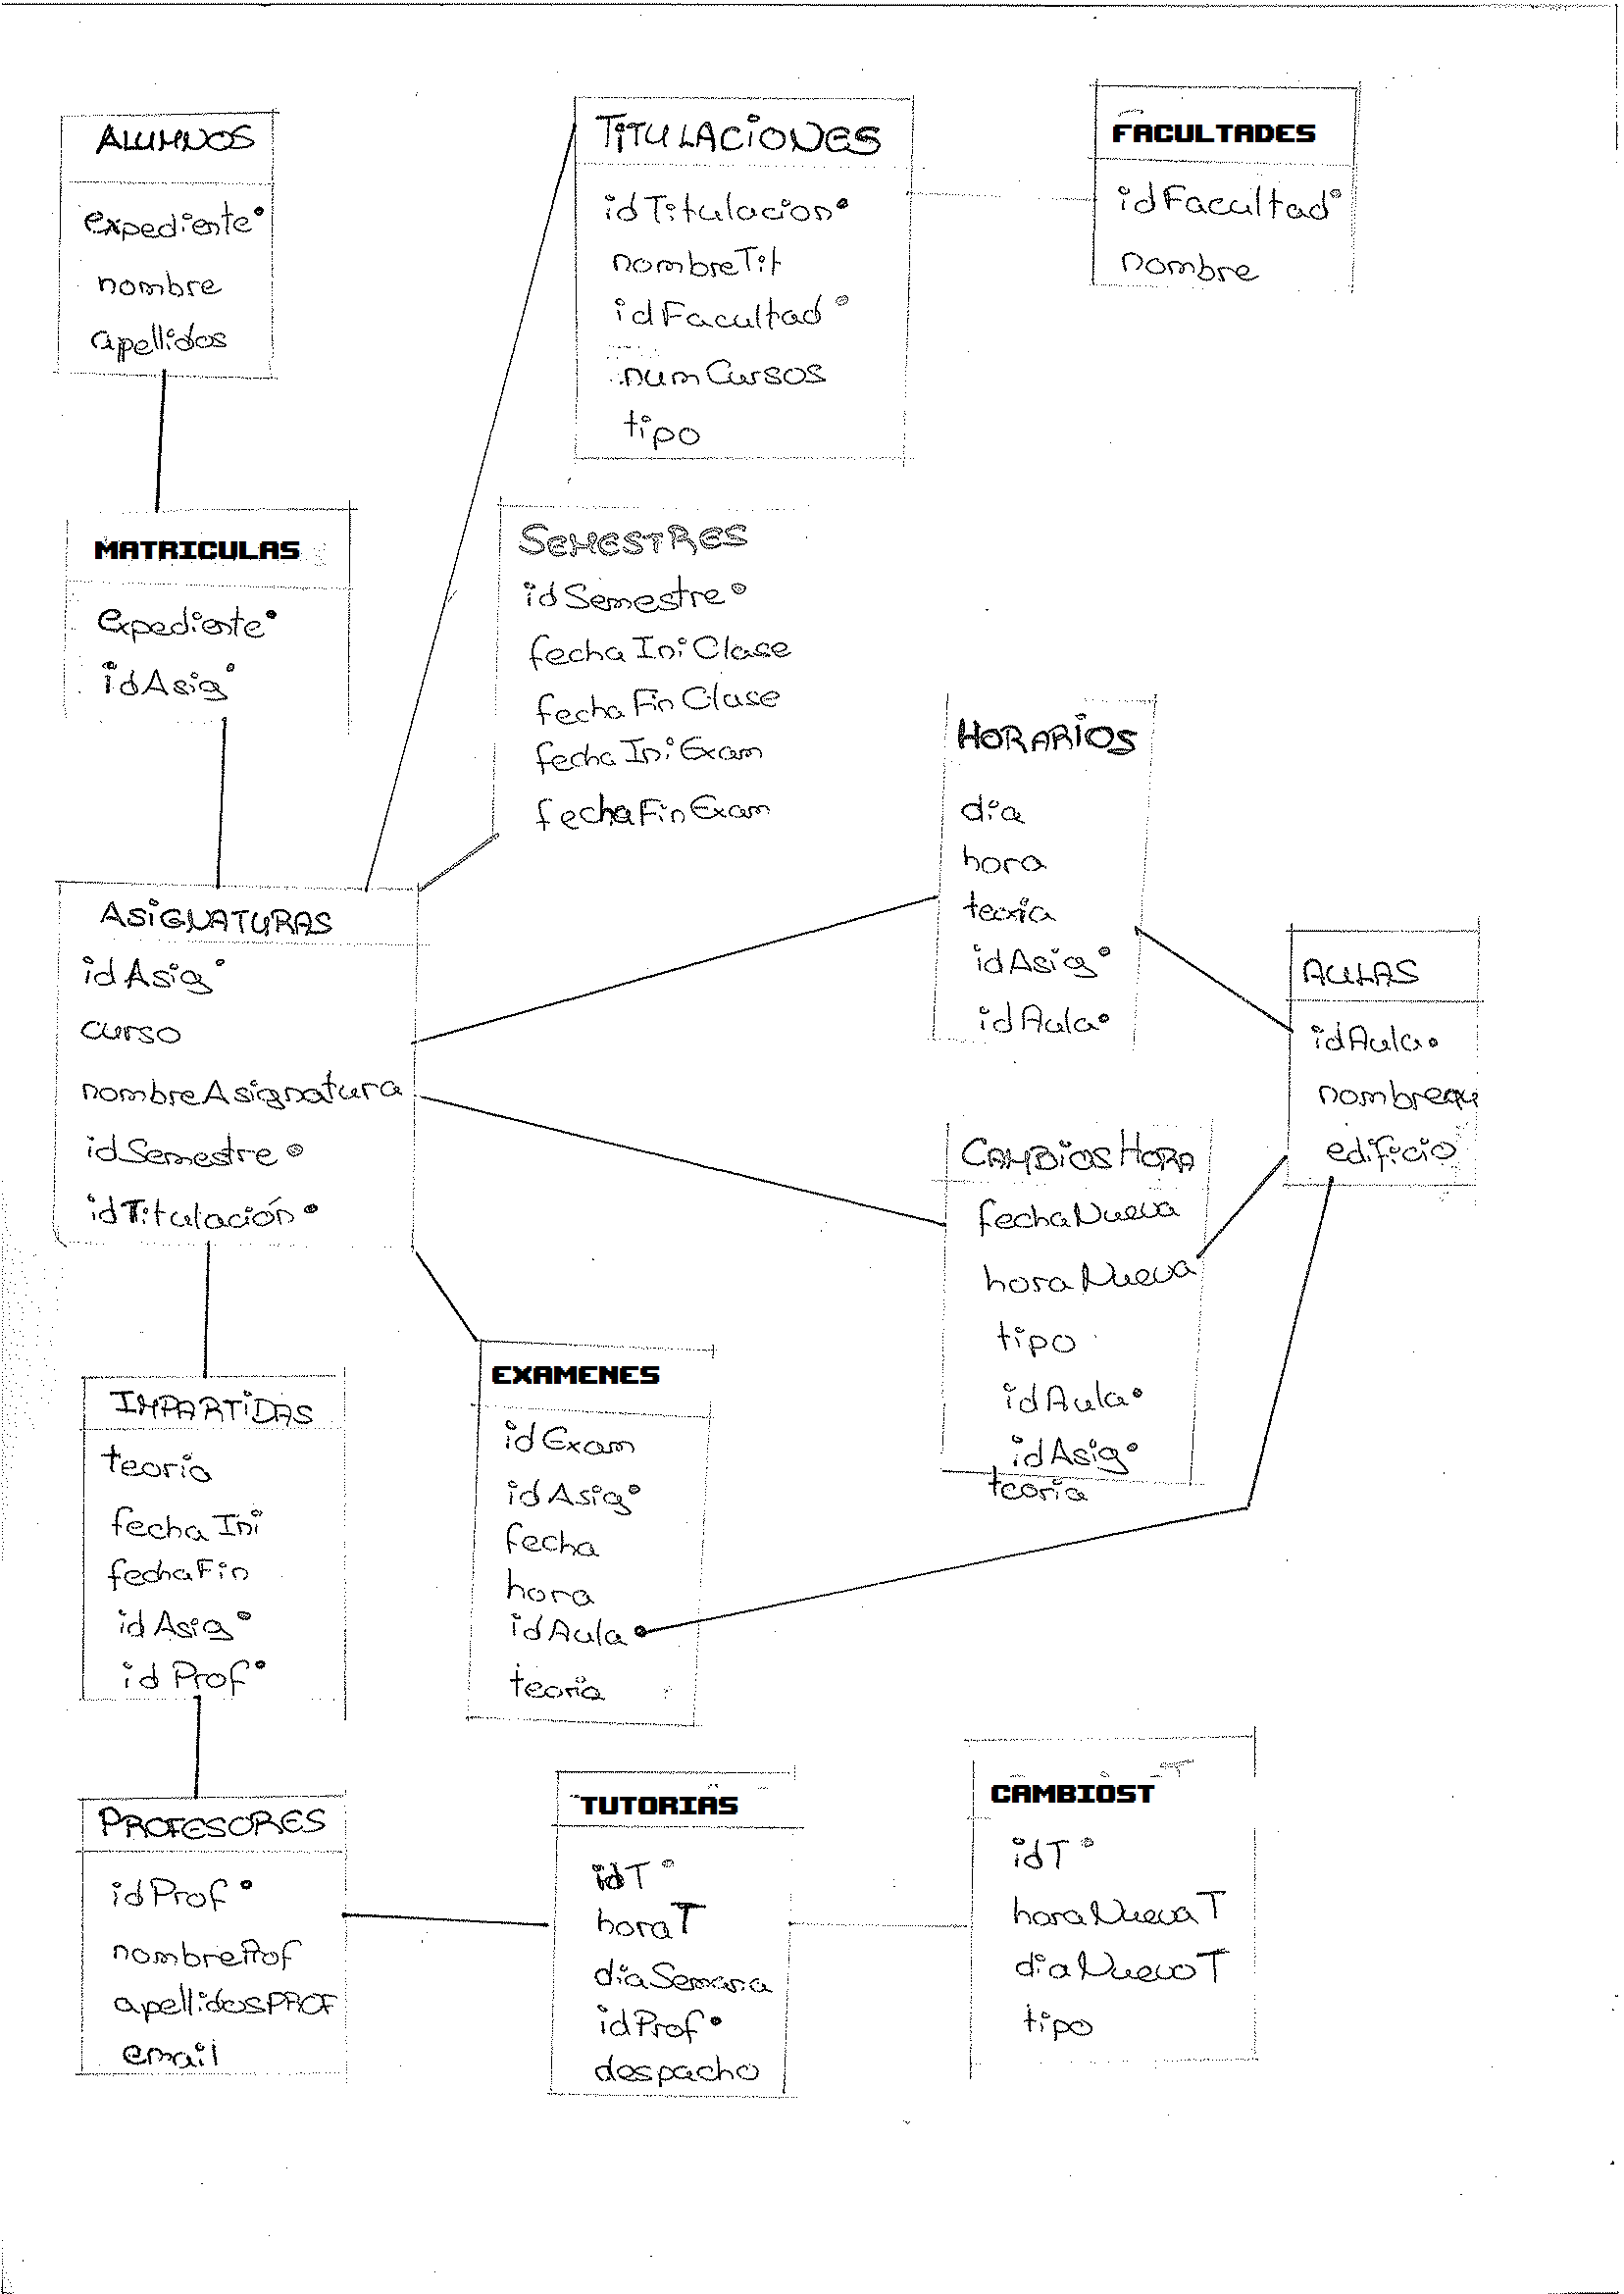 ALUMNOS
expediente
nombre
apellidos
TITULACIONES
idTitulacion
nombreTit
idFacultad
numCursos
tipo
FACULTADES
idFacultad
nombre
MATRICULAS
expediente
idAsig
SEMESTRES
idSemestre
fechaIniClase
fechaFinClase
fechaIniExam
fechaFinExam
HORARIOS
día
hora
teoría
idAsig
idAula
AULAS
idAula
edificio
ASIGNATURAS
idAsig
curso
nombreAsignatura
idSemestre
idTitulación
CAMBIOSHORA
fechaNueva
horaNueva
tipo
idAula
idAsig
teoría
IMPARTIDAS
teoría
fechaIni
fechaFin
idAsig
idProf
EXAMENES
idExam
idAsig
fecha
hora
idAula
teoría
PROFESORES
idProf
nombreProf
apellidosPROF
email
TUTORIAS
idT
horaT
diaSemana
idProf
despacho
CAMBIOST
idT
horaNuevaT
diaNuevoT
tipo